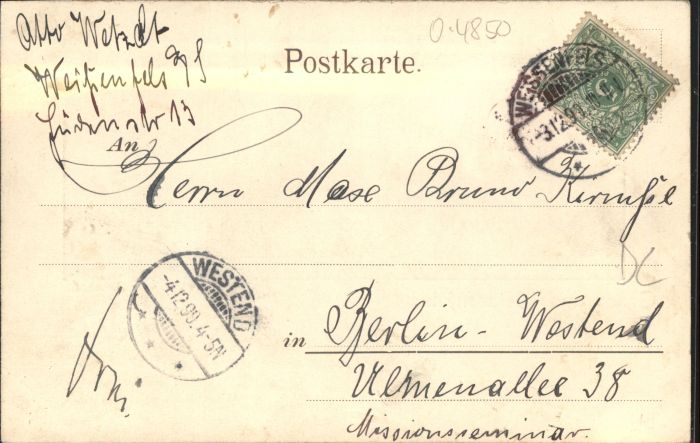 Otto Wetzdt
Weißenfels a/S
Judenstr 13
0.4850
Postkarte.
WEISSENFELS
3.12.99
An
Herrn Max Bruno
DC
WESTEND
-4.12.99.4-5N
in Berlin-Westend
Ulmenallee 38
Missionsseminar.